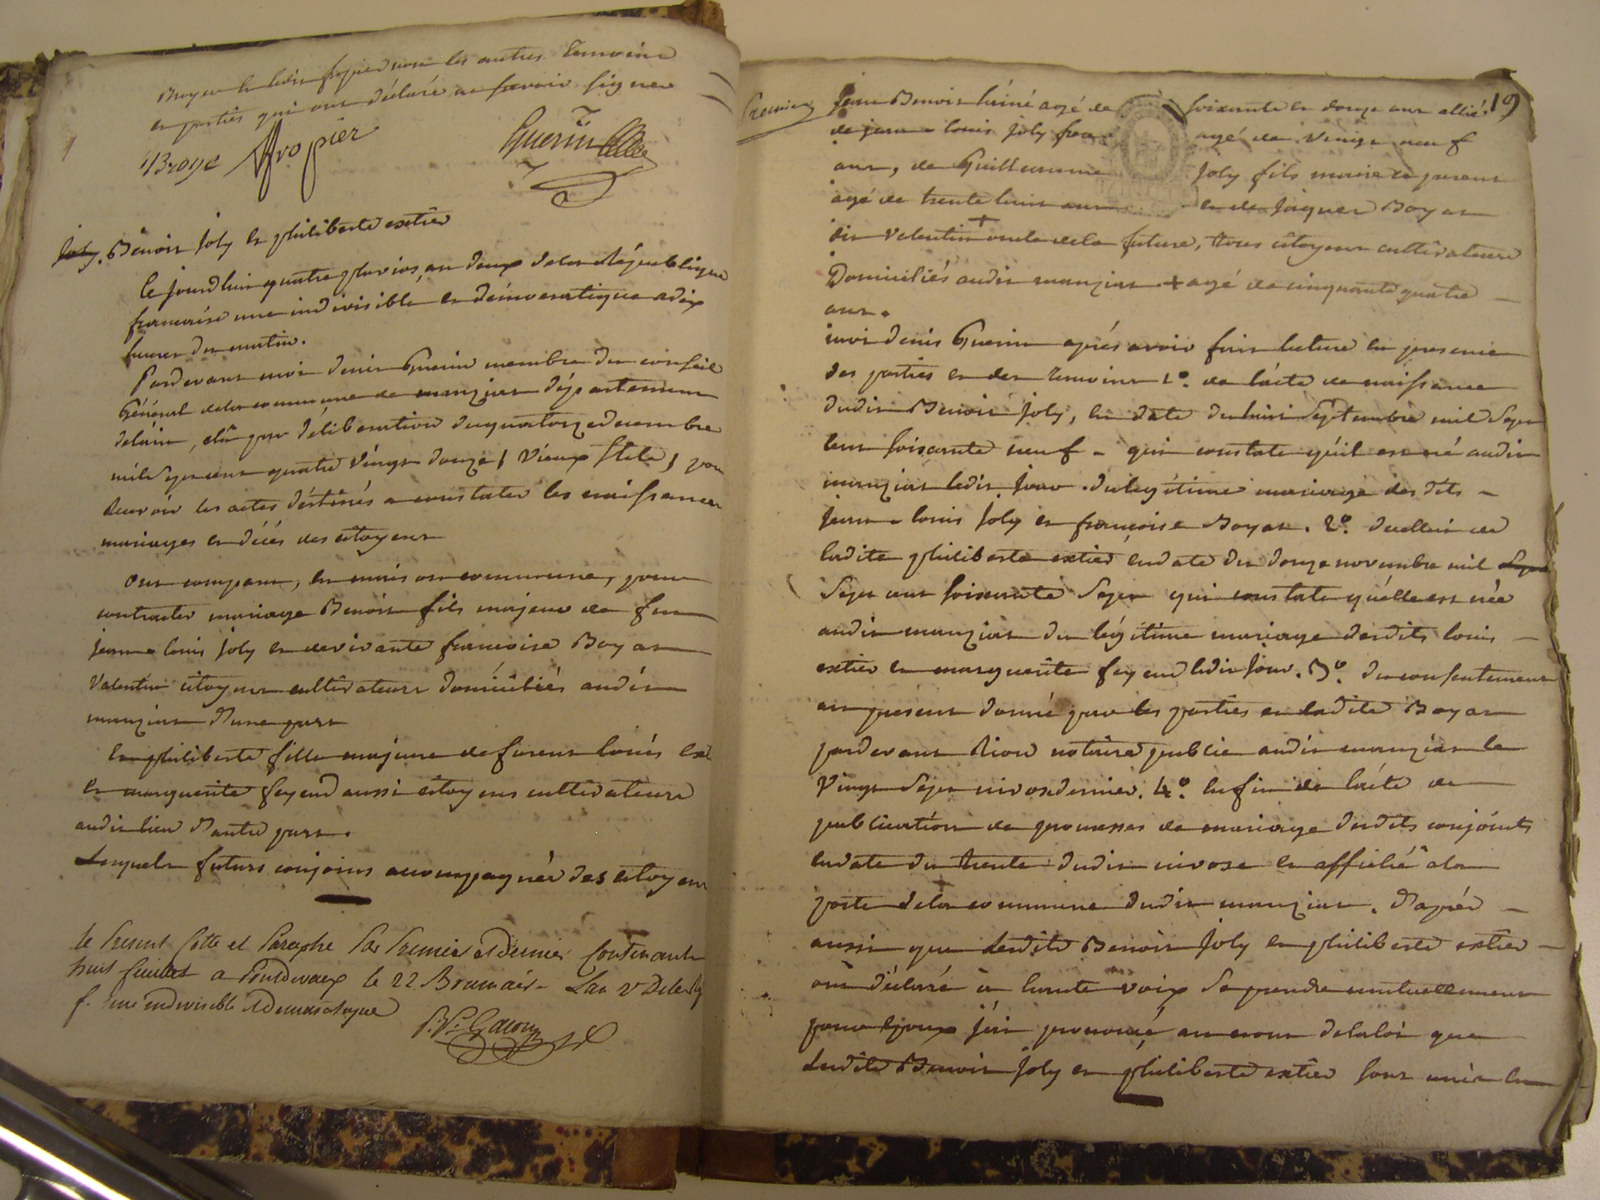 Broyer et ledit fropier non les autres temoins
et parties qui ont déclaré ne scavoir signer
Broye fropier Guerin
Joly. Benoit Joly et philiberte extier
Ce jourdhui quatre pluvios, an deux de la République
francaise une indivisible et démocratique a dix
heures du matin.
Pardevant moi denis Guerin membre du conseil
Général de la commune de manziat département
delain, élu par déliberation du quatorze decembre
mil sept cent quatre vingt douze (vieux stile) pour
recevoir les actes déstinés a constater les naissances
mariages et décés des citoyens
Ont comparu, en maison commune, pour
contracter mariage Benoit fils majeur de feu
jean-louis joly et de vivante francoise Boyat
Valentin citoyens cultivateurs domiciliés audit
manziat d'une part
Et philiberte fille majeure de furent louis ext
et marguerite feyeud aussi citoyens cultivateurs
audit lieu d'autre part.
Lesquels futurs conjoints accompagnés des citoyens
le présent Cotté et Paraphé Par Premier et dernier Contenant
huit feuillets a Pontdevaux le 22 Brumaire Lan 2e De la R
f. une indivisible et Democratique
19
Premier
Jean Benoit lainé agé de soixante et douze ans allié
de jean-louis joly agé de vingt neuf
ans, de Guillaume joly fils marie parent
agé de trente huit ans et de jaques Boyat
dit Valentin + oncle de la future, tous citoyens cultivateurs
Domiciliés audit manziat + agé de cinquante quatre
ans.
moi denis Guerin aprés avoir fait lecture en presence
des parties et des temoins 1°. de lacte de naissance
dudit Benoit joly, en date du huit septembre mil sept
cent soixante neuf - qui constate qu'il est né audit
manziat ledit jour du légitime mariage des dits
jean-louis joly et francoise Boyat. 2°. de celui de
ladite philiberte extier en date du douze novembre mil
sept cent soixante sept qui constate qu'elle est née
audit manziat du légitime mariage desdits louis
extier et marguerite feyeud ledit jour. 3°. du consentement
apresent donné par les parties et ladite Boyat
pardevant Riou notaire public audit manziat le
vingt sept nivose dernier. 4°. enfin de lacte de
publication de promesses de mariage desdits conjoints
en date du trente dudit nivose et affiché a la
porte de la commune dudit manziat. D'aprés
aussi que lesdits Benoit joly et philiberte extier
ont déclaré à haute voix se prendre mutuellement
pour époux j'ai prononcé au nom de la loi que
lesdits Benoit joly et philiberte extier sont unis en